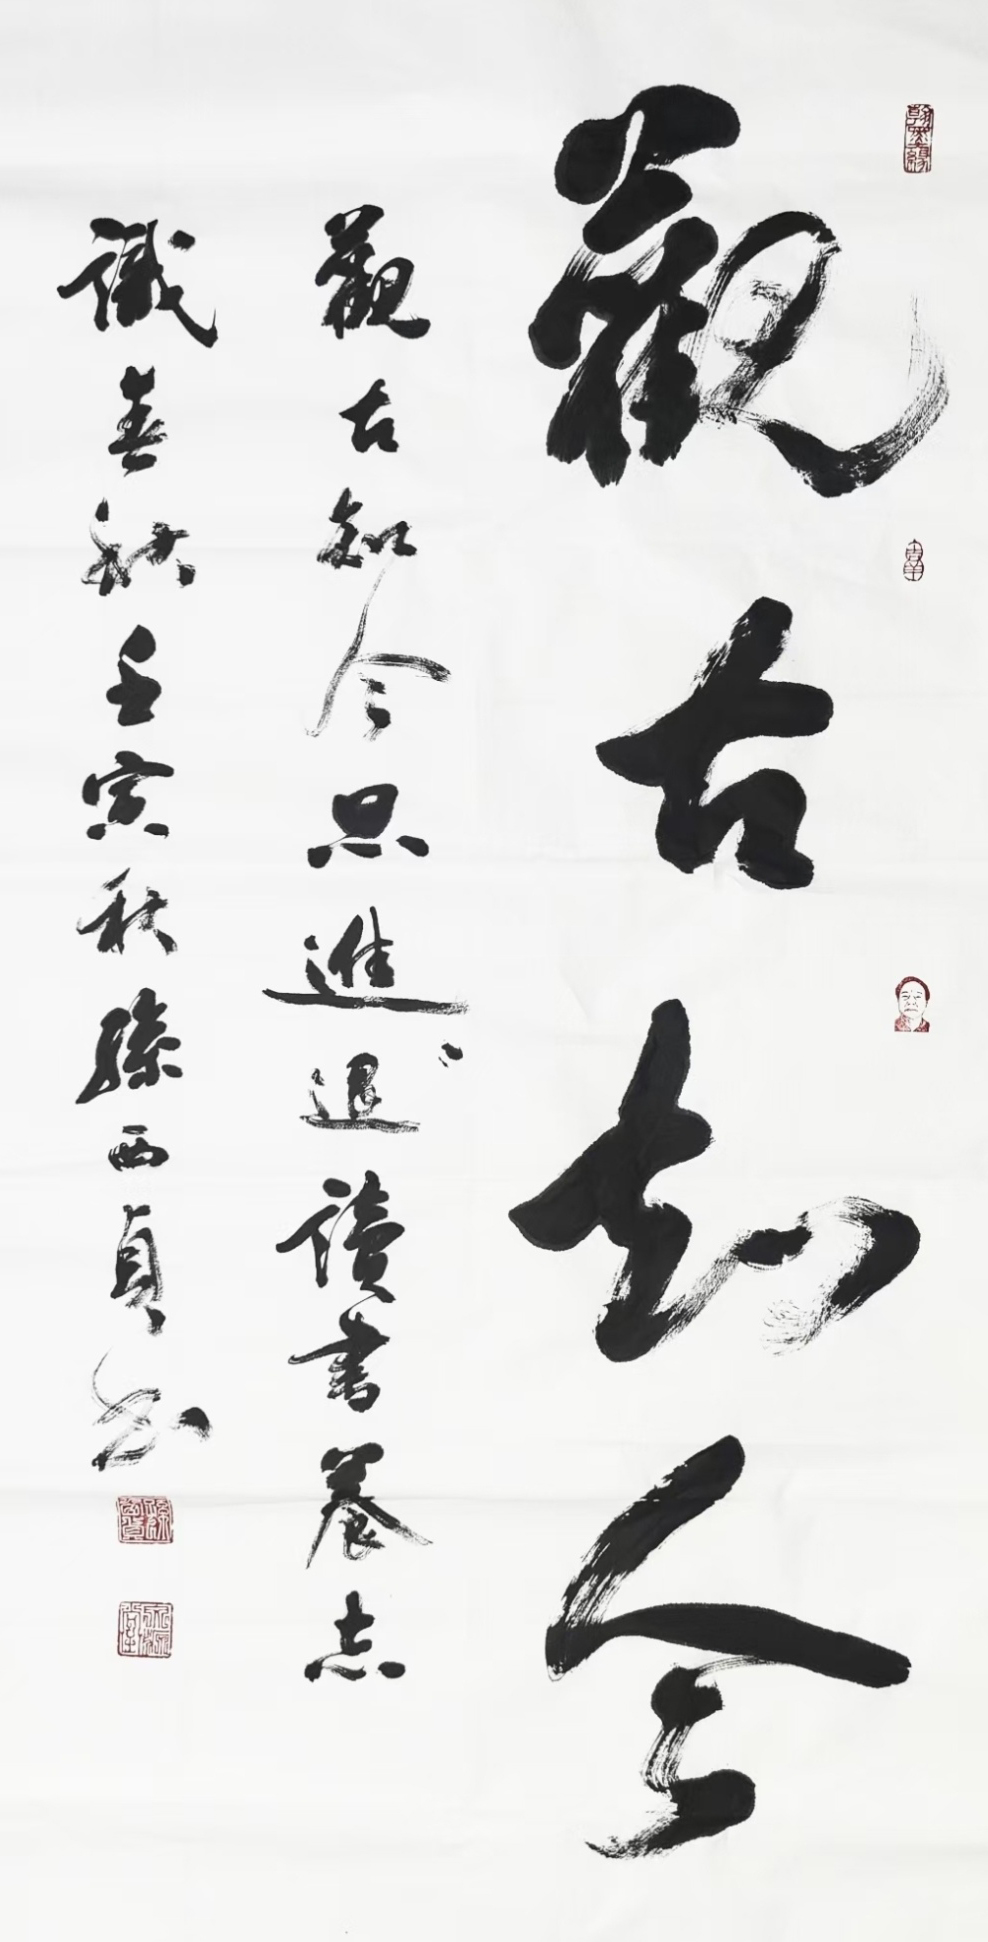 觀古知今
觀古知今只進退讀書養志
識春秋壬寅秋孫西貞書
翰墨緣